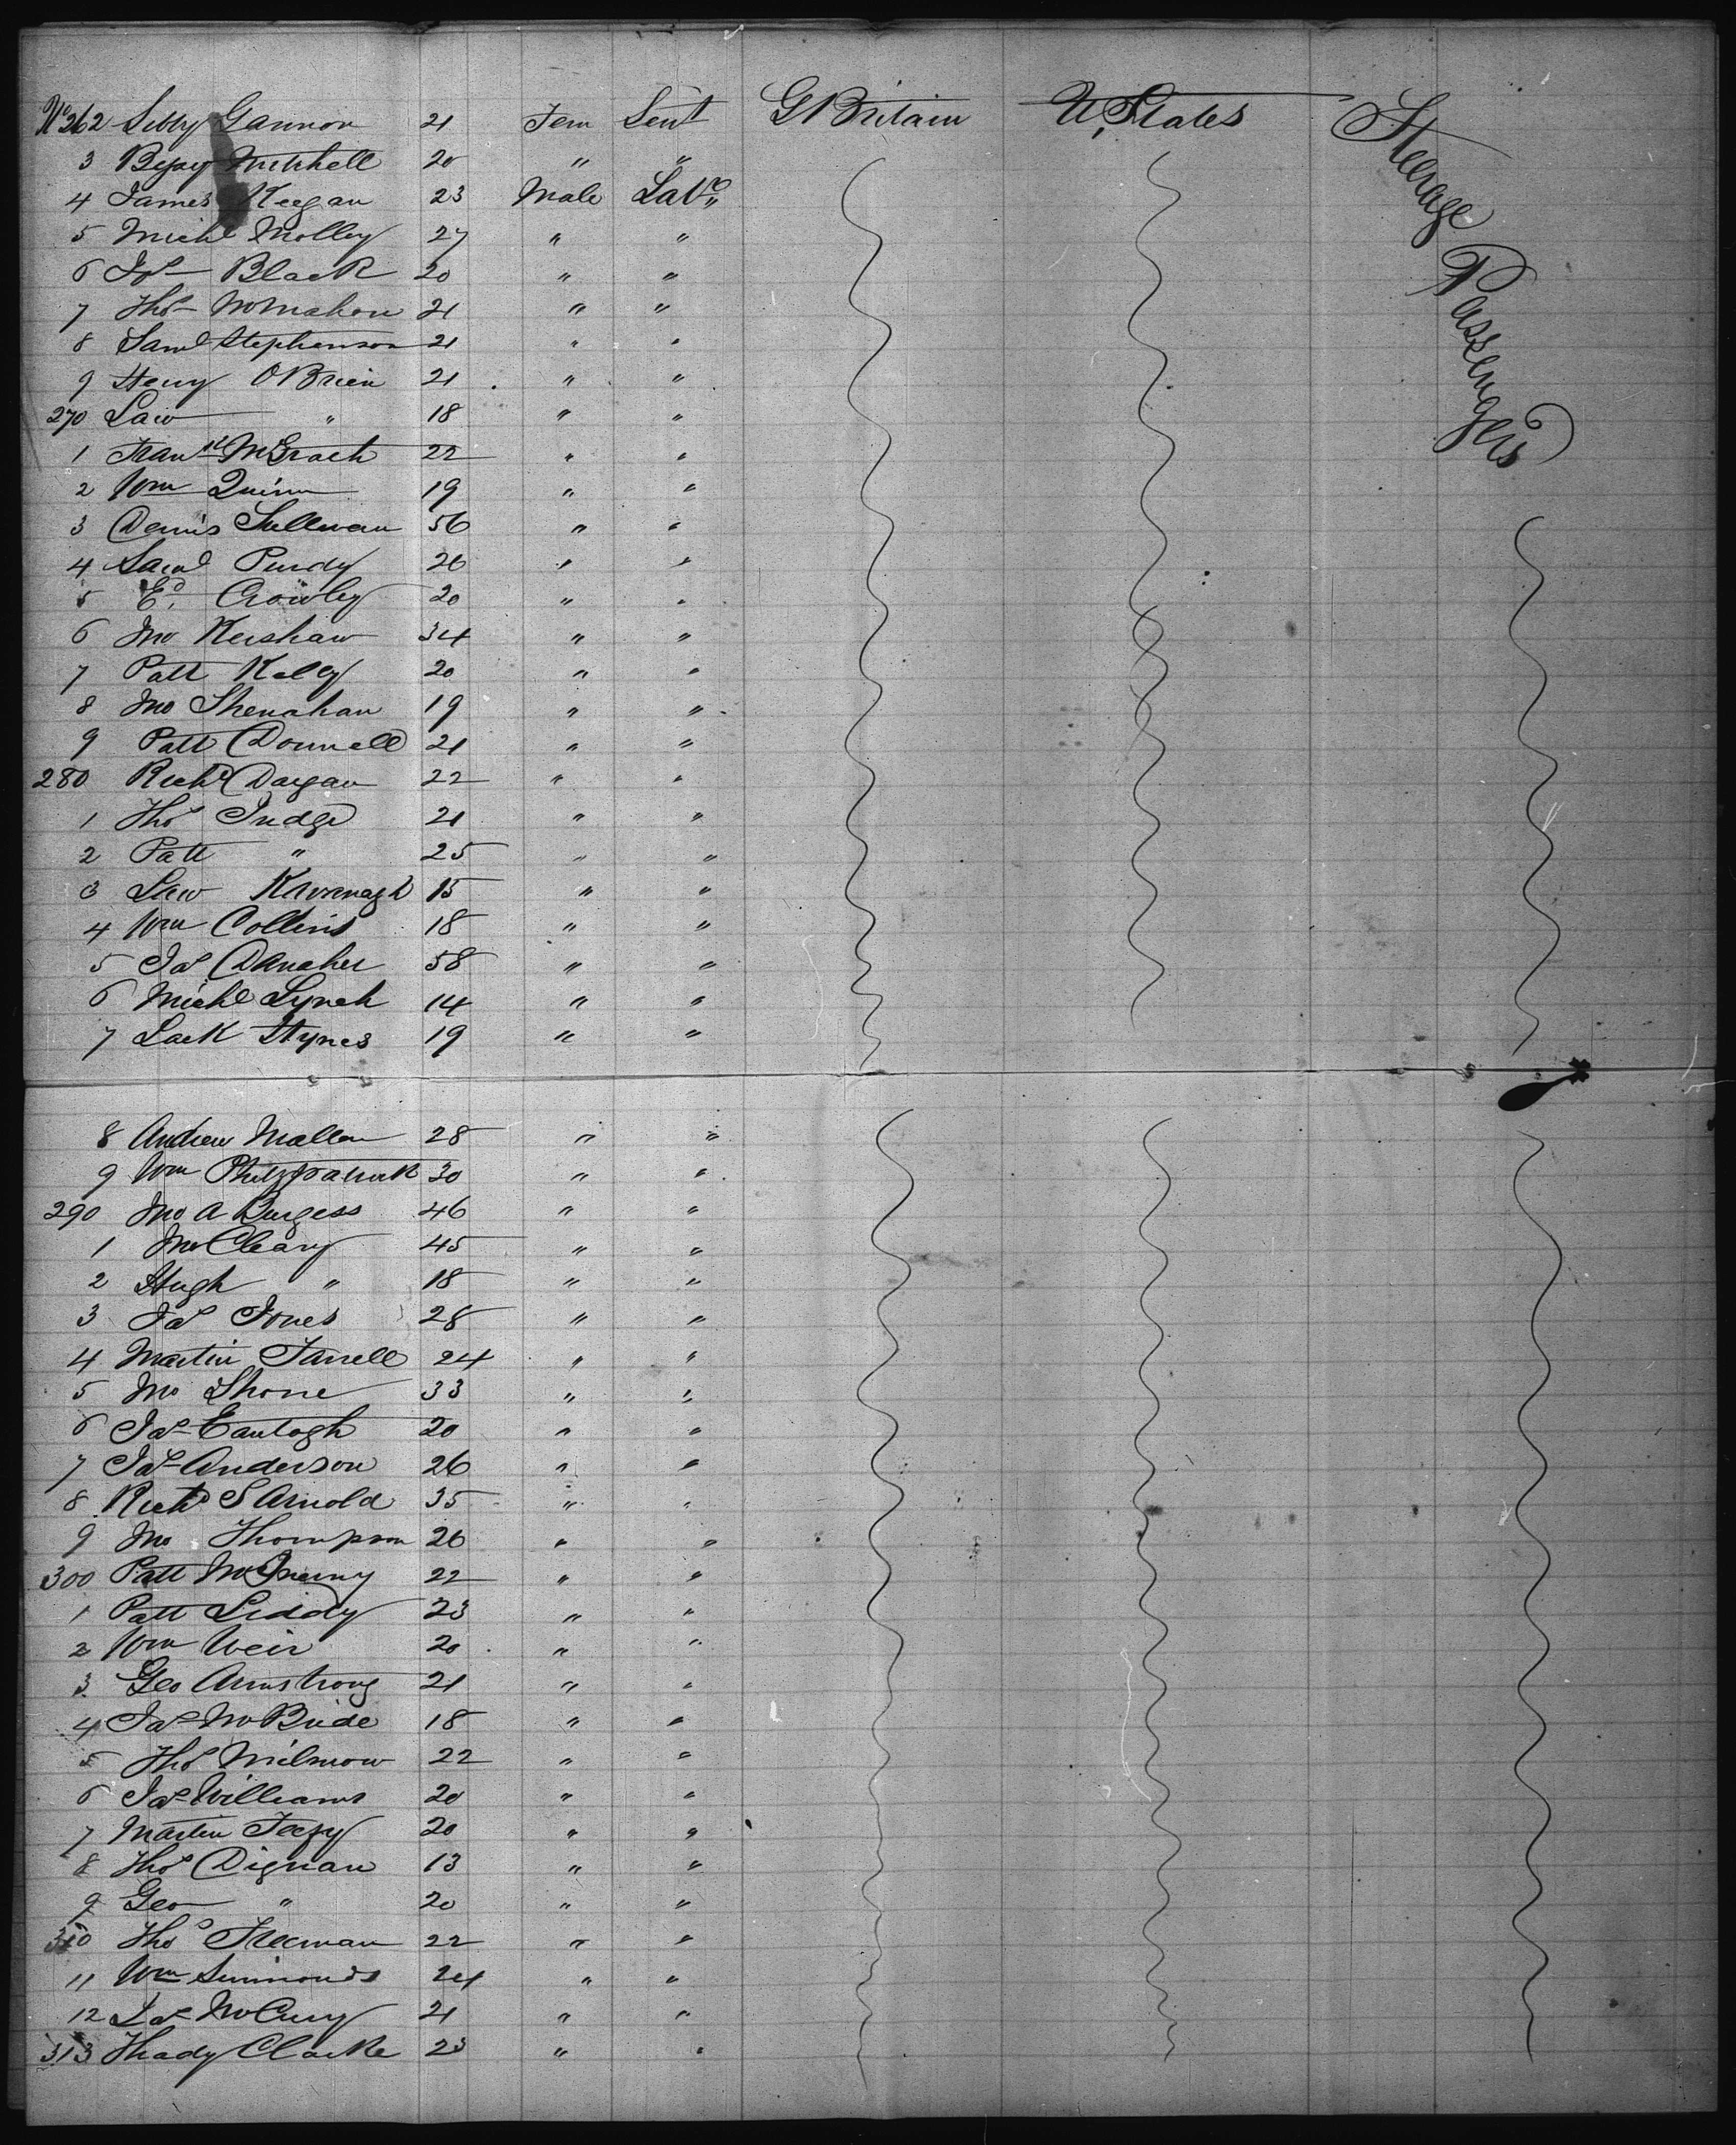 No 262 Libby Gannon 21 Fem Sert G Britain U, States Steerage Passengers
3 Bessy Mitchell 20 " "
4 James Keegan 23 Male Labr "
5 Michl Molloy 27 " "
6 Jos Black 20 " "
7 Thos McMahon 21 " "
8 Saml Stephenson 21 " "
9 Henry OBrien 21 " "
270 Law " 18 " "
1 Frans McGrath 22 " "
2 Wm Quinn 19 " "
3 Denis Sullivan 56 " "
4 Saml Purdy 26 " "
5 Ed. Crowley 20 " "
6 Jno Kershaw 34 " "
7 Patt Kelly 20 " "
8 Jno Shenahan 19 " "
9 Patt Donnell 21 " "
280 Richd Dargan 22 " "
1 Thos Judge 21 " "
2 Patt " 25 " "
3 Law Kavanagh 15 " "
4 Wm Collins 18 " "
5 Jas Danaher 58 " "
6 Michl Lynch 14 " "
7 Lack Hynes 19 " "
8 Andrew Mallon 28 " "
9 Wm 30 " "
290 Jno A Burgess 46 " "
1 Jno Cleary 45 " "
2 Hugh " 18 " "
3 Jas Jones 28 " "
4 Martin Farrell 24 " "
5 Jno Shone 33 " "
6 Jas 20 " "
7 Jas Anderson 26 " "
8 Richd S Arnold 35 " "
9 Jno Thompson 26 " "
300 Patt 22 " "
1 Patt Liddy 23 " "
2 Wm Weir 20 " "
3 Geo Armstrong 21 " "
4 Jas McBride 18 " "
5 Thos Milmow 22 " "
6 Jas Williams 20 " "
7 Martin 20 " "
8 Thos Dignan 13 " "
9 Geo " 20 " "
310 Thos Freeman 22 " "
11 Wm Simmonds 24 " "
12 Jas 21 " "
313 Thady Clarke 23 " "